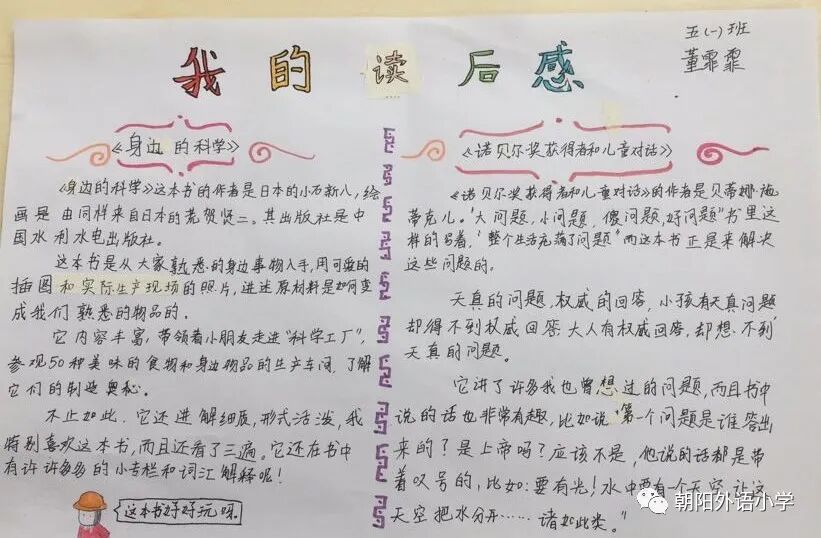 我的读后感
五(一)班
董霏霏
《身边的科学》
《身边的科学》这本书的作者是日本的小石新八,绘
画是由同样来自日本的荒贺贤二。其出版社是中
国水利水电出版社。
这本书是从大家熟悉的身边事物入手,用可爱的
插图和实际生产现场的照片,讲述原材料是如何变
成我们熟悉的物品的。
它内容丰富,带领着小朋友走进"科学工厂",
参观50种美味的食物和身边物品的生产车间,了解
它们的制造奥秘。
不止如此,它还进解细质,形式活泼,我
特别喜欢这本书,而且还看了三遍。它还在书中
有许许多多的小专栏和词汇解释呢!
这本书好好玩呀。
《诺贝尔奖获得者和儿童对话》
《诺贝尔奖获得者和儿童对话》的作者是贝蒂娜·施
蒂克儿。"大问题,小问题,傻问题,好问题"书里这
样的写着,"整个生活充满了问题"而这本书正是来解决
这些问题的。
天真的问题,权威的回答,小孩有天真问题
却得不到权威回答,大人有权威回答,却想不到
天真的问题。
它讲了许多我也曾想过的问题,而且书中
说的话也非常有趣,比如说"第一个问题是谁答出
来的?是上帝吗?应该不是,他说的话都是带
着叹号的,比如:要有光!水中要有一个天空,让这
天空把水分开……诸如此类。"
朝阳外语小学